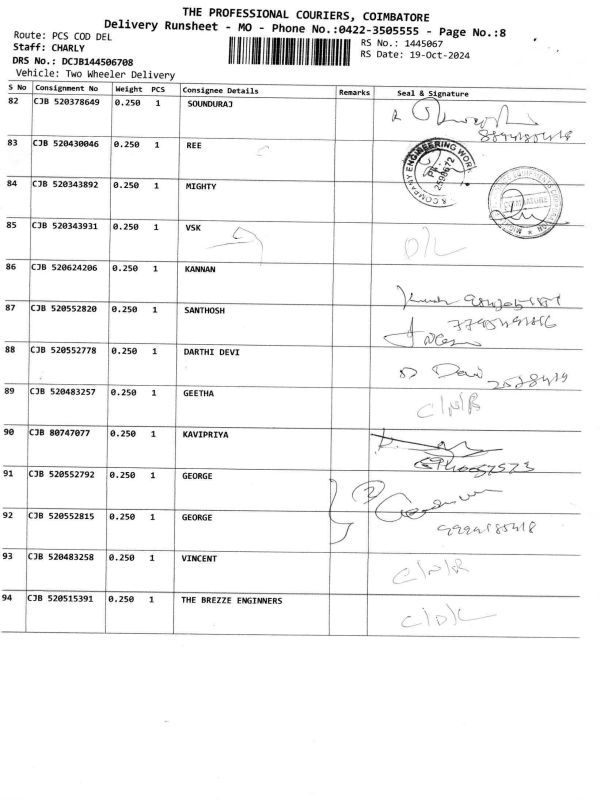 THE PROFESSIONAL COURIERS, COIMBATORE
Delivery Runsheet - MO - Phone No.:0422-3505555 - Page No.:8
Route: PCS COD DEL
RS No.: 1445067
Staff: CHARLY
RS Date: 19-Oct-2024
DRS No.: DCJB144506708
Vehicle: Two Wheeler Delivery
S No Consignment No Weight PCS Consignee Details Remarks Seal & Signature
82 CJB 520378649 0.250 1 SOUNDURAJ
83 CJB 520430046 0.250 1 REE
84 CJB 520343892 0.250 1 MIGHTY
85 CJB 520343931 0.250 1 VSK D/L
86 CJB 520624206 0.250 1 KANNAN
87 CJB 520552820 0.250 1 SANTHOSH
88 CJB 520552778 0.250 1 DARTHI DEVI Devi
89 CJB 520483257 0.250 1 GEETHA C/N/R
90 CJB 80747077 0.250 1 KAVIPRIYA
91 CJB 520552792 0.250 1 GEORGE
92 CJB 520552815 0.250 1 GEORGE
93 CJB 520483258 0.250 1 VINCENT C/N/R
94 CJB 520515391 0.250 1 THE BREZZE ENGINNERS C/D/L